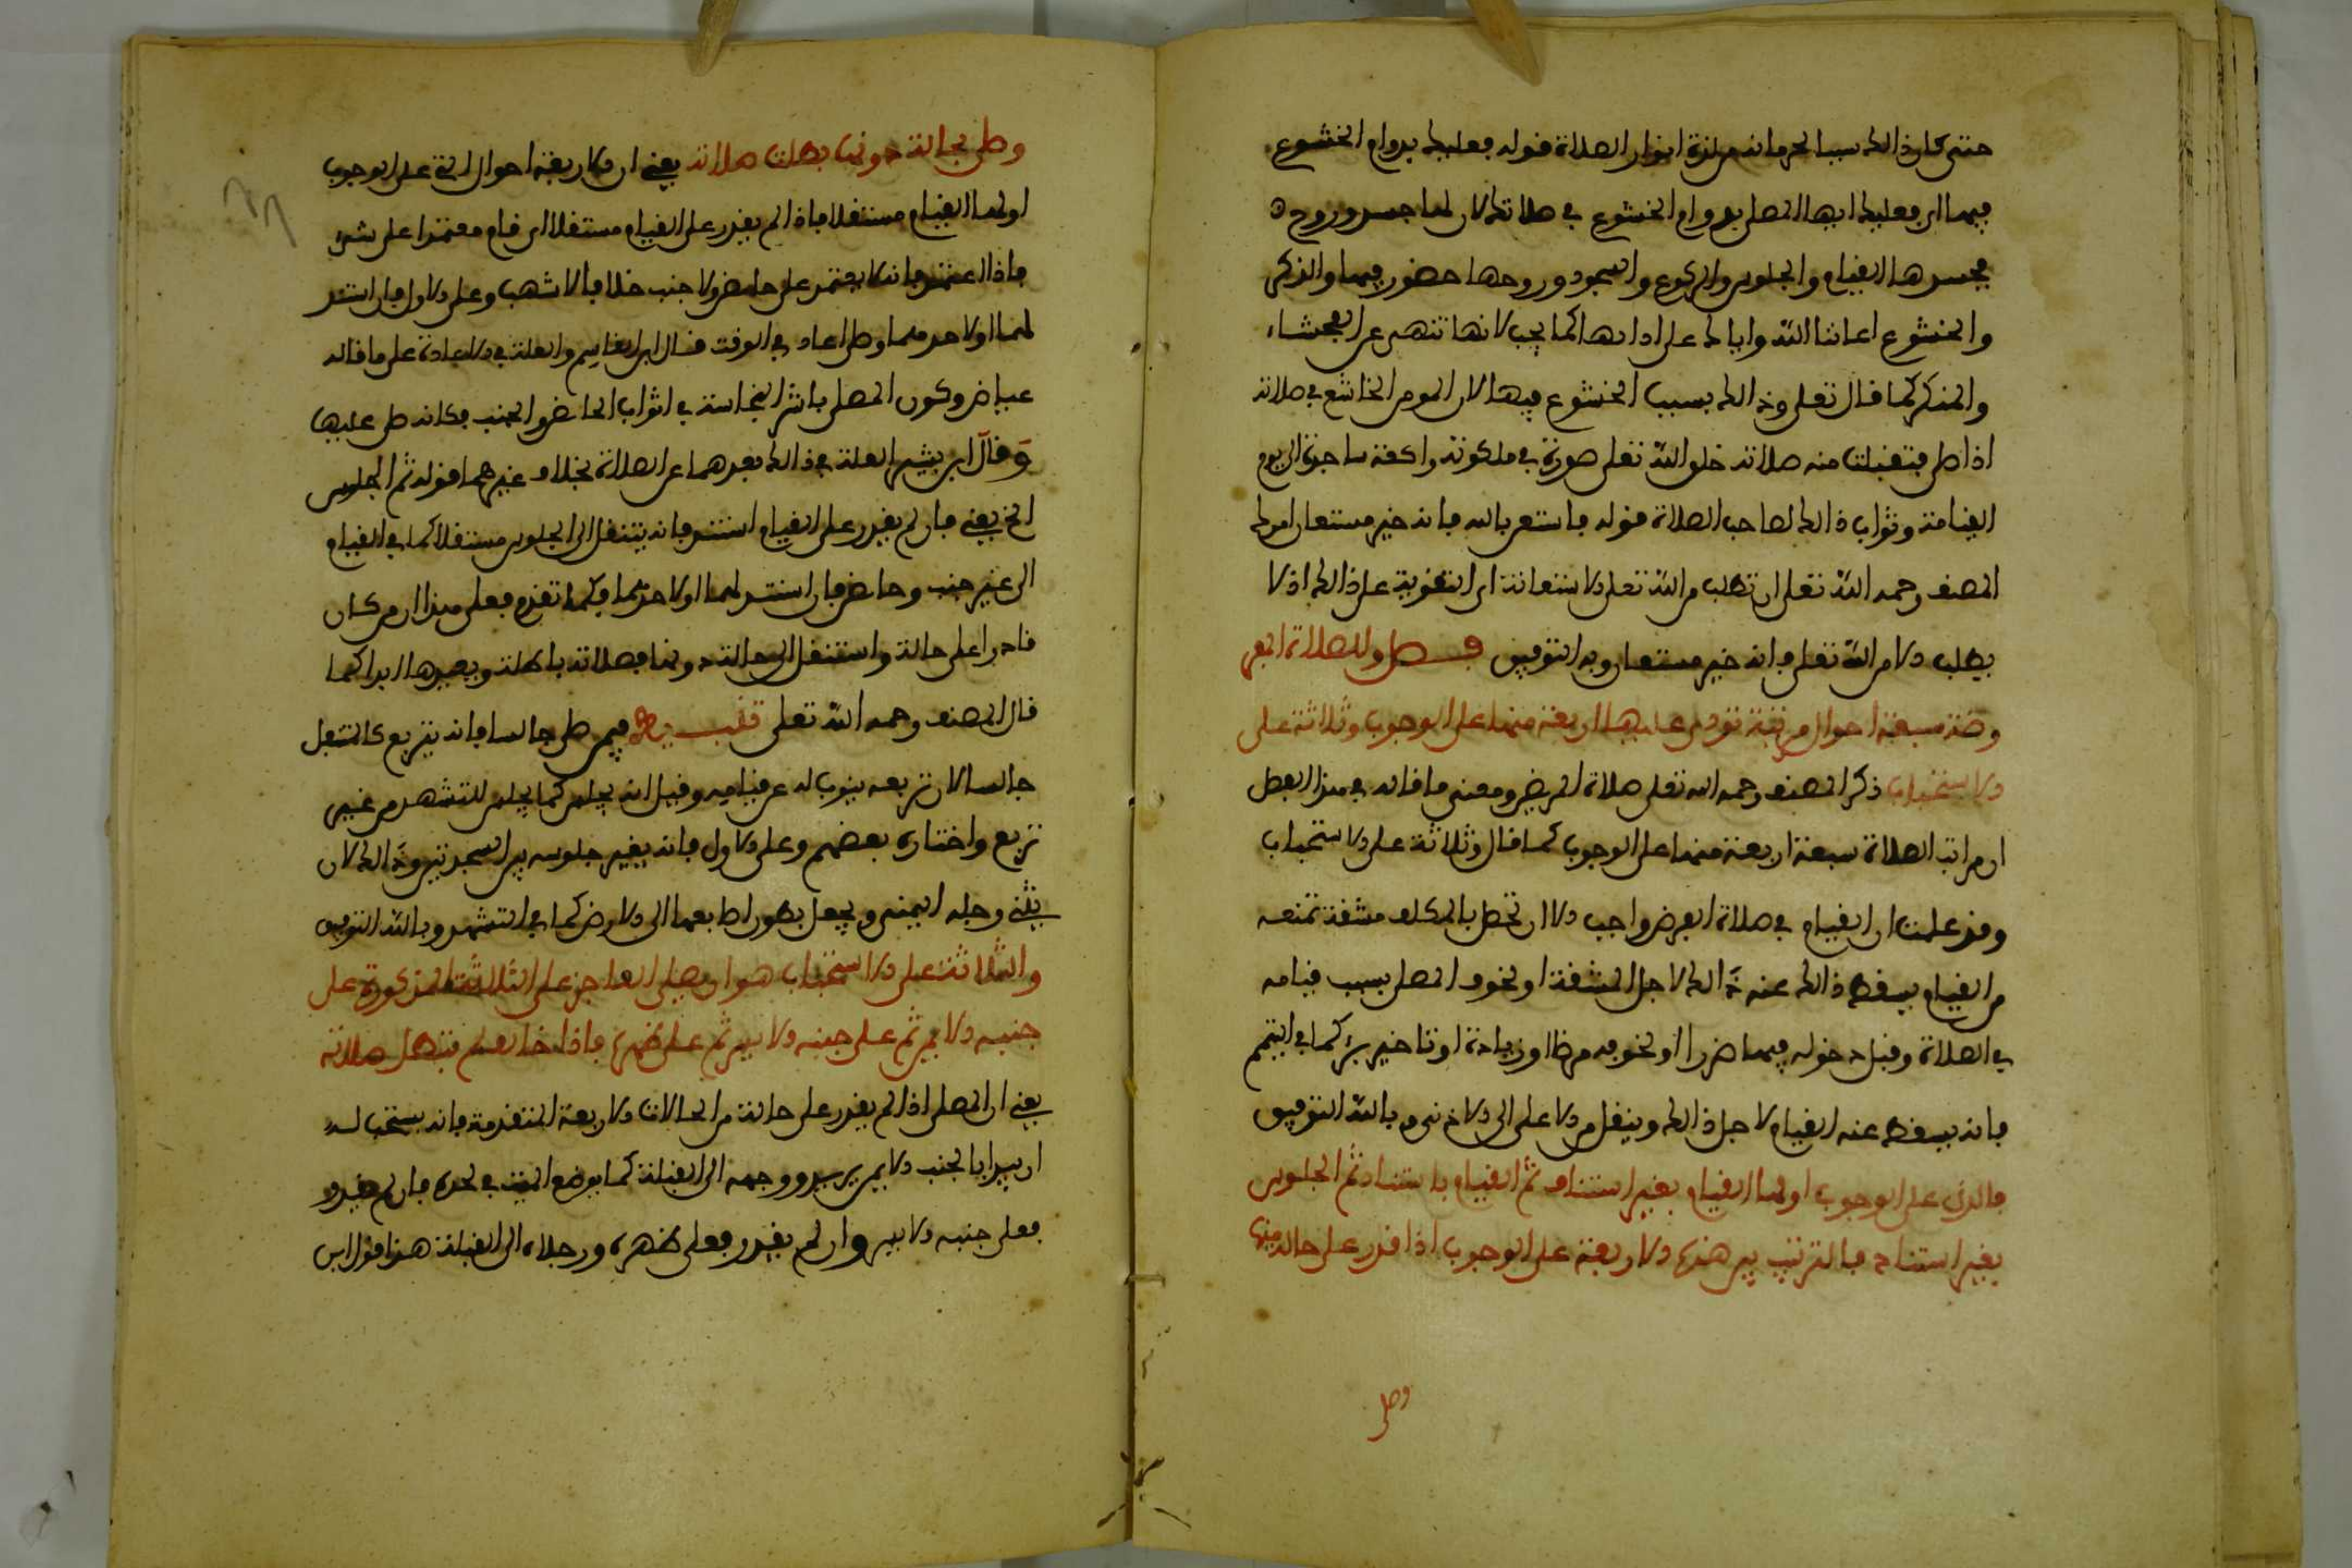 حتى كان ذالك سببا لحرمانه من لذة انوار الصلاة قوله فعليك بدوام الخشوع
فيها اي فعليك ايها المصلي بدوام الخشوع في صلاتك لان لها جسد وروح
فجسدها القيام والجلوس والركوع والسجود وروحها حضور فيها والذكر
والخشوع اعاننا الله واياك على ادابها كما يجب لانها تنهى عن الفحشاء
والمنكر كما قال تعلى وذالك بسبب الخشوع فيها لان المومن الخاشع في صلاته
اذا صلى فتقبلت منه صلاته خلق الله تعلى صورة في ملكوته راكعة ساجدة الى يوم
القيامة وثواب ذالك لصاحب الصلاة قوله فاستعن بالله فانه خير مستعان امرك
المصنف رحمه الله تعلى ان تطلب من الله تعلى الاستعانة اي التقوية على ذالك اذ لا
يطلب الا من الله تعلى فانه خير مستعان وبه التوفيق فصل وللصلاة المفر
وضة سبعة احوال مرتبة تودى عليها اربعة منها على الوجوب وثلاثة على
الاستحباب ذكر المصنف رحمه الله تعلى صلاة المريض ومعنى ما قاله في هذا الفصل
ان مراتب الصلاة سبعة اربعة منها على الوجوب كما قال وثلاثة على الاستحباب
وقد علمت ان القيام في صلاة الفرض واجب الا ان تحصل بالمكلف مشقة تمنعه
من القيام فيسقط ذالك عنه ذالك لاجل المشقة او لخوف المصلي بسبب قيامه
في الصلاة وقبل دخوله فيها ضررا او لخوفه مرضا او زيادة او تاخير برء كما في التيمم
فانه يسقط عنه القيام لاجل ذالك وينقل من الاعلى الى الادنى وبالله التوفيق
فالذي على الوجوب اولها القيام بغير استناد ثم القيام باستناد ثم الجلوس
بغير استناد فالترتيب بين هذه الاربعة على الوجوب اذا قدر على حالة منها
وصلى
وصلى بحالة دونها بطلت صلاته يعني ان الاربعة احوال التي على الوجوب
اولها القيام مستقلا فاذا لم يقدر على القيام مستقلا اي قام معتمدا على شيء
فاذا اعتمد فانه لا يعتمد على حائض ولا جنب خلافا لاشهب وعلى الاول فان استند
لهما او لاحدهما وصلى اعاد في الوقت قال ابن القاسم والعلة في الاعادة على ما قاله
عياض وكون المصلي باشر النجاسة في اثواب الحائض والجنب فكانه صلى عليها
وقال ابن بشير العلة في ذالك بعدهما عن الصلاة بخلاف غيرهما قوله ثم الجلوس
الخ يعني فان لم يقدر على القيام استند فانه ينتقل الى الجلوس مستقلا كما في القيام
الى غير جنب وحائض فان استند لهما او لاحدهما فكما تقدم فعلى هذا ان من كان
قادرا على حالة وانتقل الى حالة دونها فصلاته باطلة ويعيدها ابدا كما
قال المصنف رحمه الله تعلى تنبيه فيمن صلى جالسا فانه يتربع كالمتنفل
جالسا لان تربعه ينوب له عن قيامه وقيل انه يجلس كما يجلس للتشهد من غير
تربع واختاره بعضهم وعلى الاول فانه يغير جلوسه بين السجدتين وذالك لان
يثني رجله اليمنى ويجعل بطون اصابعها الى الارض كما في التشهد وبالله التوفيق
والثلاثة على الاستحباب هو ان يصلي العاجز على الثلاثة المذكورة على
جنبه الايمن ثم على جنبه الايسر ثم على ظهره فاذا خالف لم تبطل صلاته
يعني ان المصلي اذا لم يقدر على حالة من الحالات الاربعة المتقدمة فانه يستحب له
ان يبدا بالجنب الايمن ووجهه الى القبلة كما يوضع الميت في لحده فان لم يقدر
فعلى جنبه الايسر وان لم يقدر فعلى ظهره ورجلاه الى القبلة هذا قول ابن